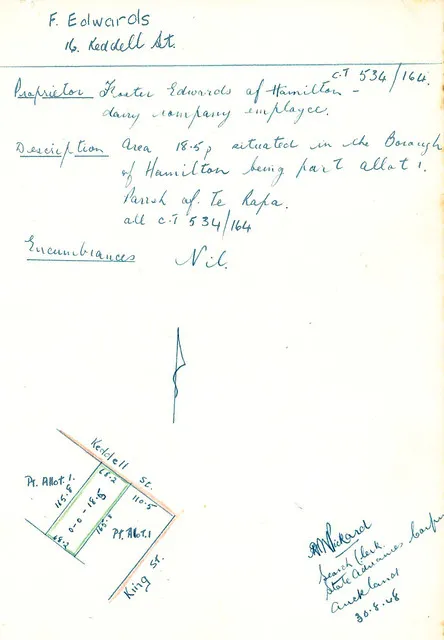 F. Edwards
16. Keddell St.
C.T 534/164.
Proprietor Foster Edwards of Hamilton -
dairy company employee.
Description Area 18.5p situated in the Borough
of Hamilton being part allot 1.
Parish of Te Rapa.
all C.T 534/164
Encumbrances Nil.
Keddell St.
Pt. Allot. 1.
68.2
110.5
165.8
0-0-18.5
165.8
Pt. Allot. 1
68.2
King St.
Pickard
Search Clerk
State Advances Corpn
Auckland
30.8.48